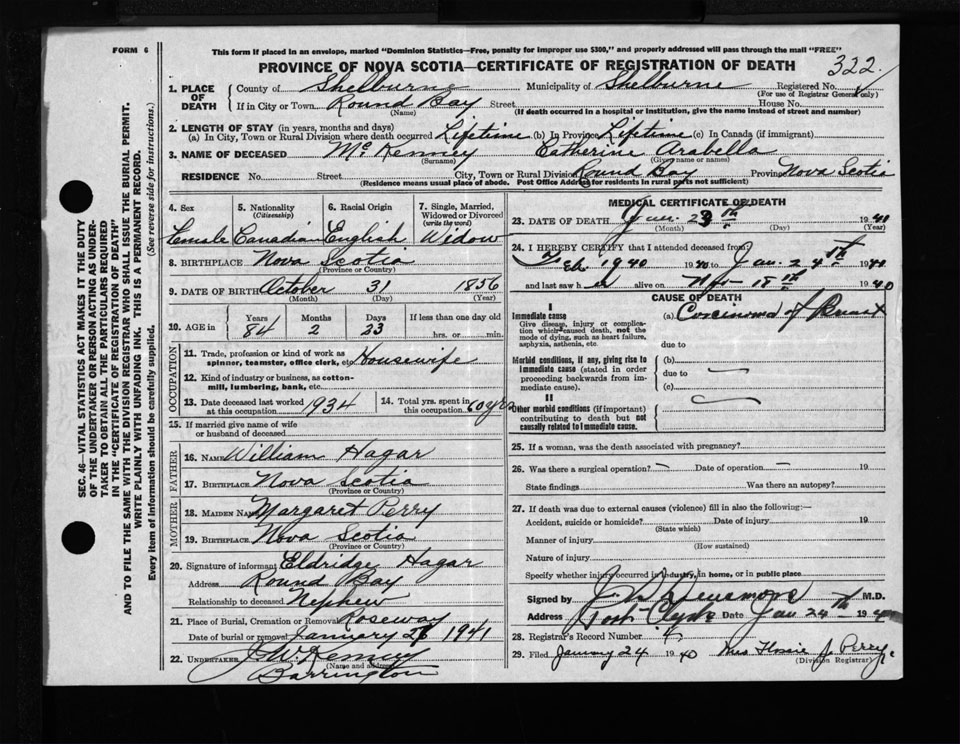 FORM 6
This form if placed in an envelope, marked "Dominion Statistics—Free, penalty for improper use $300," and properly addressed will pass through the mail "FREE"
PROVINCE OF NOVA SCOTIA—CERTIFICATE OF REGISTRATION OF DEATH
322.
SEC. 46—VITAL STATISTICS ACT MAKES IT THE DUTY
OF THE UNDERTAKER OR PERSON ACTING AS UNDER-
TAKER TO OBTAIN ALL THE PARTICULARS REQUIRED
IN THE "CERTIFICATE OF REGISTRATION OF DEATH"
AND TO FILE THE SAME WITH THE DIVISION REGISTRAR WHO SHALL ISSUE THE BURIAL PERMIT.
WRITE PLAINLY WITH UNFADING INK. THIS IS A PERMANENT RECORD.
Every item of information should be carefully supplied. (See reverse side for instructions.)
1. PLACE OF DEATH
County of Shelburne Municipality of Shelburne Registered No.
(For use of Registrar General only)
If in City or Town Round Bay Street House No.
(Name) (If death occurred in a hospital or institution, give the name instead of street and number)
2. LENGTH OF STAY (in years, months and days)
(a) In City, Town or Rural Division where death occurred Lifetime (b) In Province Lifetime (c) In Canada (if immigrant)
3. NAME OF DECEASED McKenney Catherine Arabella
(Surname) (Given name or names)
RESIDENCE No. Street City, Town or Rural Division Round Bay Province Nova Scotia
(Residence means usual place of abode. Post Office Address for residents in rural parts not sufficient)
4. Sex 5. Nationality (Citizenship) 6. Racial Origin 7. Single, Married, Widowed or Divorced (write the word)
Female Canadian English Widow
8. BIRTHPLACE Nova Scotia
(Province or Country)
9. DATE OF BIRTH October 31 1856
(Month) (Day) (Year)
10. AGE in Years Months Days If less than one day old
84 2 23 hrs. or min.
OCCUPATION
11. Trade, profession or kind of work as spinner, teamster, office clerk, etc. Housewife
12. Kind of industry or business, as cotton-mill, lumbering, bank, etc.
13. Date deceased last worked at this occupation 1934 14. Total yrs. spent in this occupation 60 yrs
15. If married give name of wife or husband of deceased
FATHER
16. NAME William Hagar
17. BIRTHPLACE Nova Scotia
(Province or Country)
MOTHER
18. MAIDEN NAME Margaret Perry
19. BIRTHPLACE Nova Scotia
(Province or Country)
20. Signature of informant Eldridge Hagar
Address Round Bay
Relationship to deceased Nephew
21. Place of Burial, Cremation or Removal Roseway
Date of burial or removal January 26 1941
22. UNDERTAKER
(Name and address)
Barrington
MEDICAL CERTIFICATE OF DEATH
23. DATE OF DEATH Jan. 23th 1940
(Month) (Day) (Year)
24. I HEREBY CERTIFY that I attended deceased from
Feb 1940 1940 to Jan. 24th 1940
and last saw her alive on 18th 1940
CAUSE OF DEATH
I
Immediate cause
Give disease, injury or complication which caused death, not the mode of dying, such as heart failure, asphyxia, asthenia, etc.
(a) Carcinoma of Breast
due to
Morbid conditions, if any, giving rise to immediate cause (stated in order proceeding backwards from immediate cause).
(b)
due to
(c)
II
Other morbid conditions (if important) contributing to death but not causally related to immediate cause.
25. If a woman, was the death associated with pregnancy?
26. Was there a surgical operation? — Date of operation — 19
State findings Was there an autopsy?
27. If death was due to external causes (violence) fill in also the following:—
Accident, suicide or homicide? Date of injury 19
(State which)
Manner of injury
(How sustained)
Nature of injury
Specify whether injury occurred in industry, in home, or in public place
Signed by M.D.
Address Port Clyde Date Jan 24th 194
28. Registrar's Record Number
29. Filed January 24 1940 Mrs Flossie J. Perry
(Division Registrar)